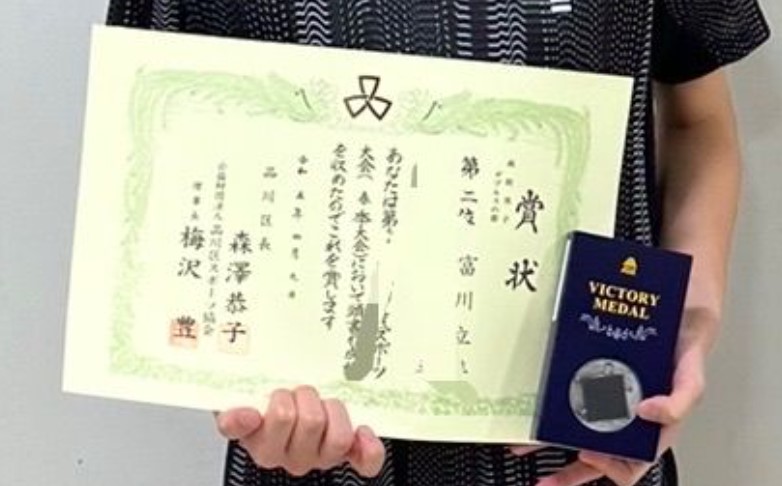 賞状
第二位 富川立
あなたは第
スポーツ
大会(春季大会)において頭書の成績
を収めたのでこれを賞します
令和五年四月九日
品川区長
森澤恭子
公益財団法人品川区スポーツ協会
理事長 梅沢 豊
VICTORY
MEDAL